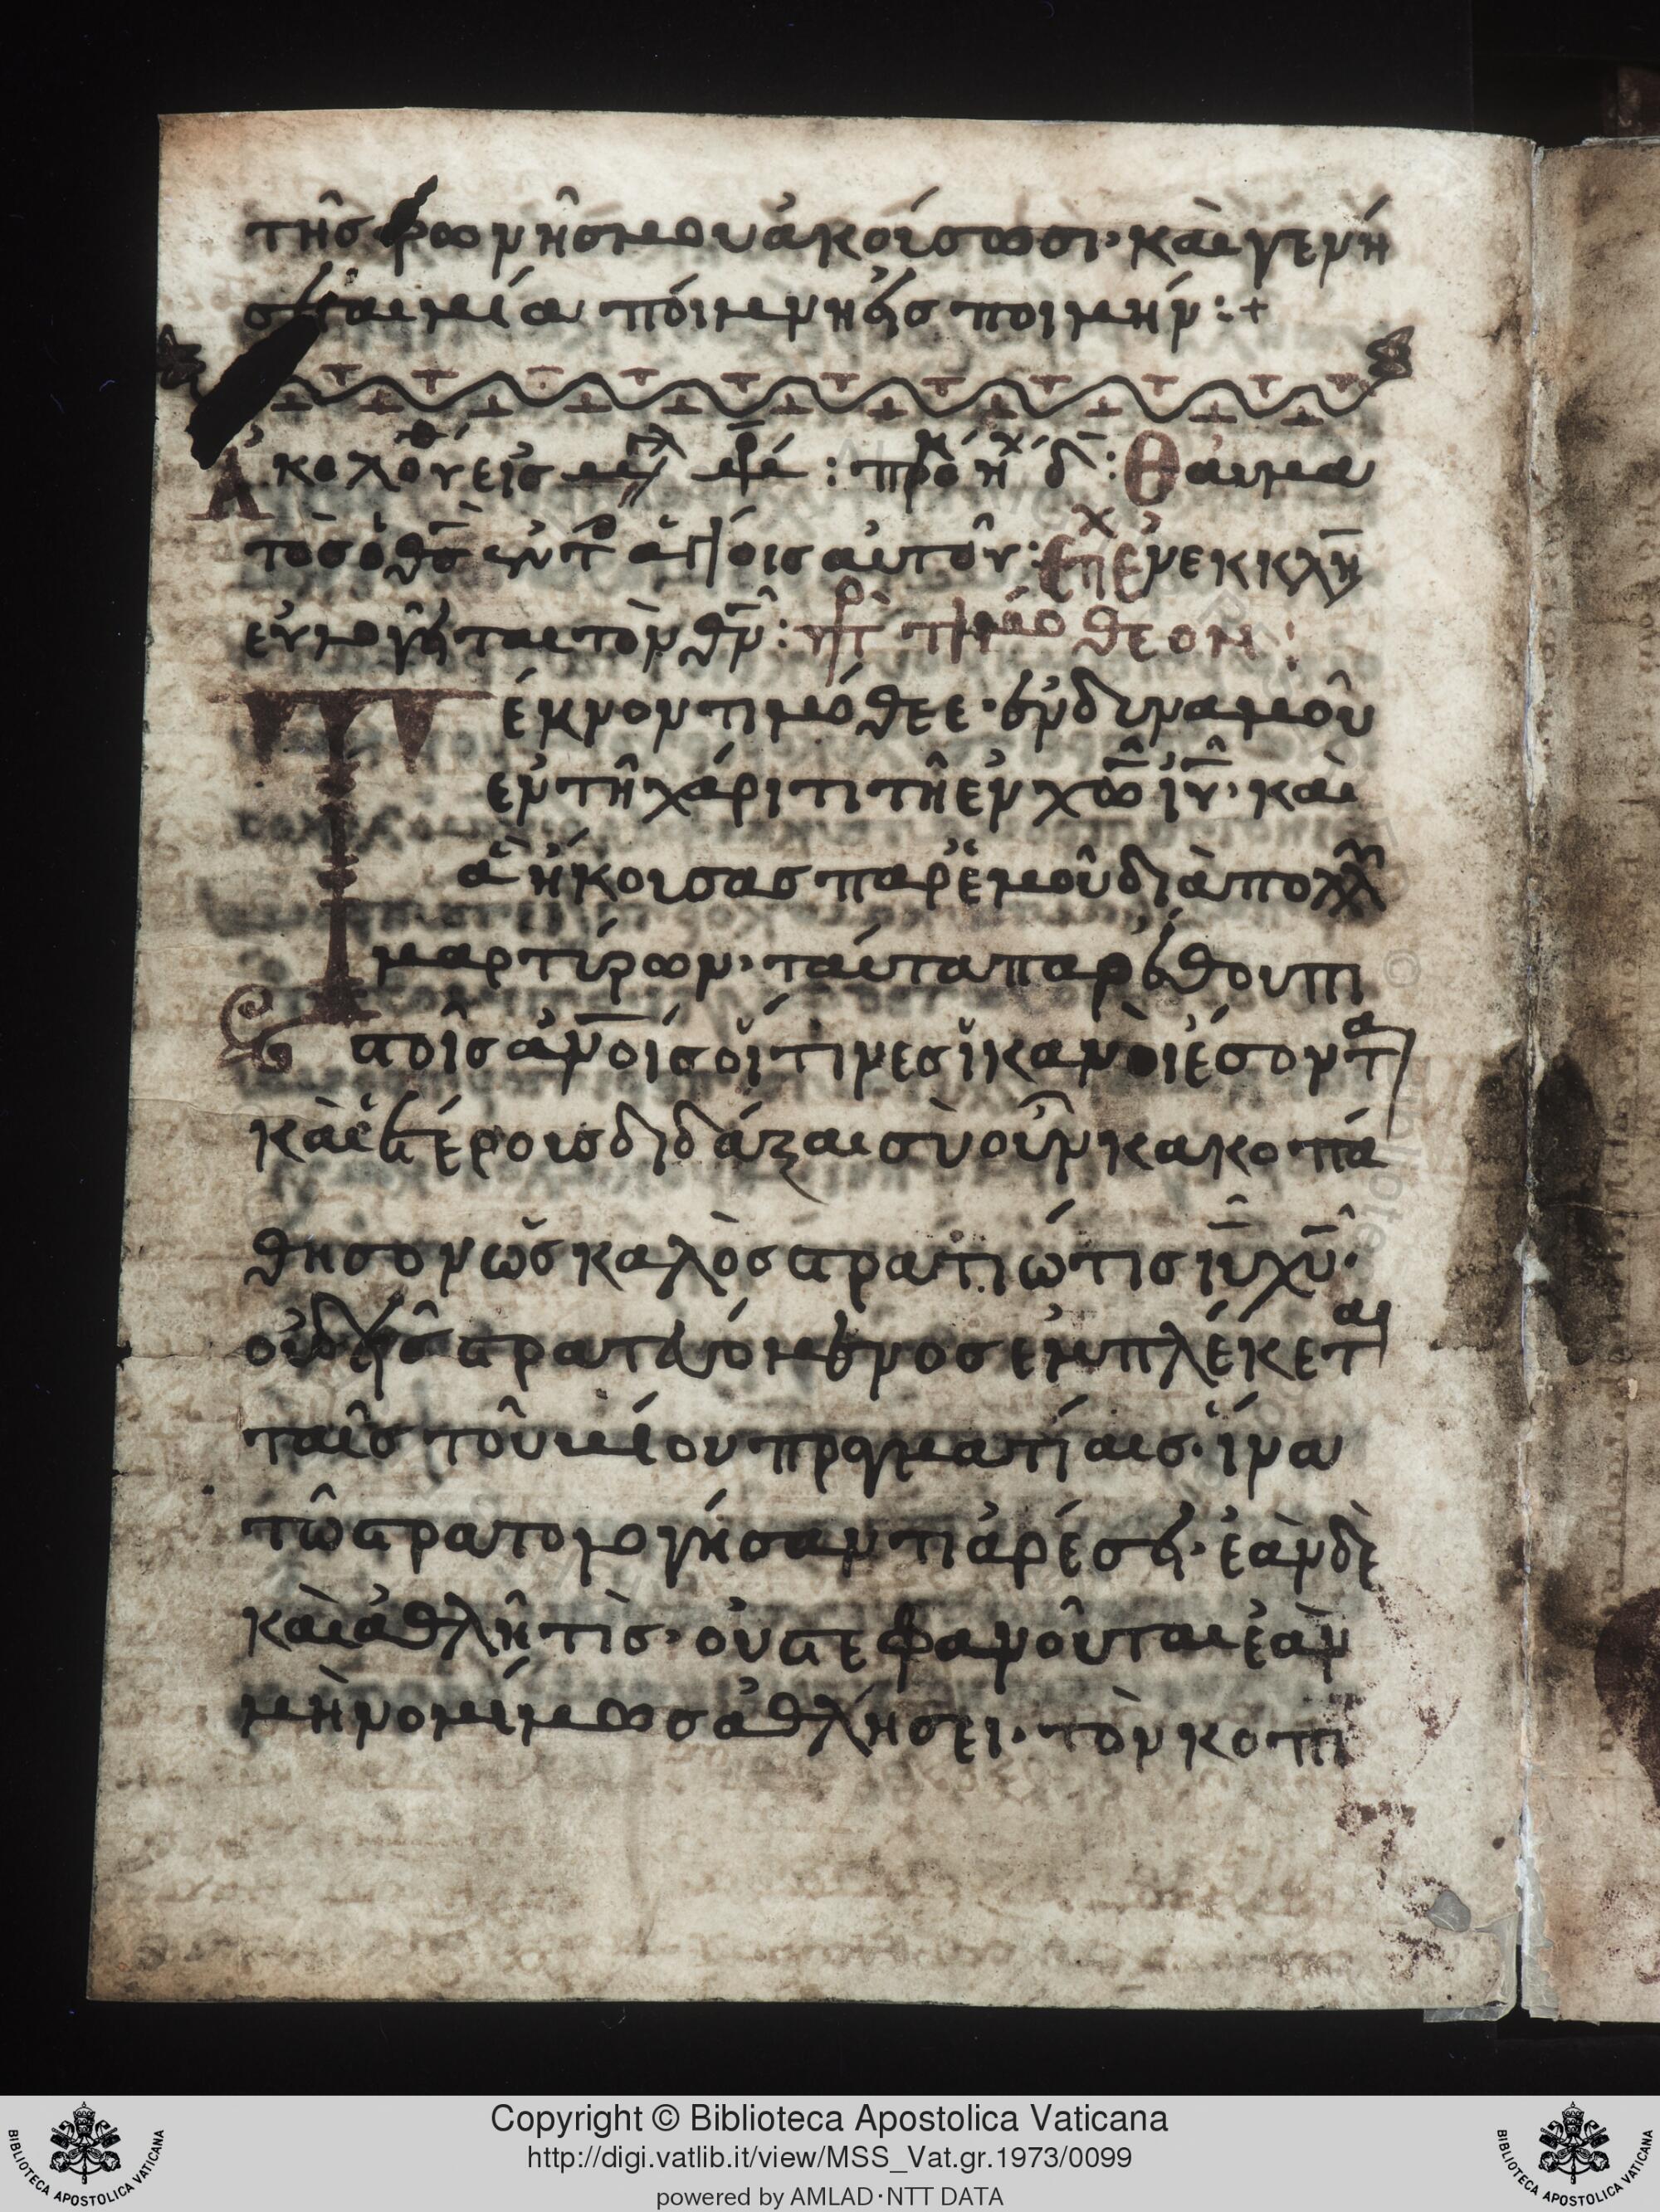 τῆς φωνῆς μου ἀκούσωσι· καὶ γενή
σεται μία ποίμνη εἷς ποιμήν :+
τὸς ὁ θς ἐν τ ἁγίοις αὐτοῦ :
εὐλογεῖται τὸν θν : πρ τιμο θεον :
Τέκνον τιμόθεε· ἐνδυναμοῦ
ἐν τῆ χάριτι τῆ ἐν χω ιυ· καὶ
ἃ ἤκουσας παρ ἐμοῦ διὰ πολλ
μαρτύρων· ταύτα παράθου πι
στοῖς ανοις οἵτινες ἱκανοὶ ἔσοντ
καὶ ἑτέροις διδάξαι σὺ οὖν κακοπά
θησον ὡς καλὸς στρατιώτις ιυ χυ·
οὐδεὶς στρατευόμενος ἐμπλέκεται
ταῖς τοῦ βίου πραγματίαις· ἵνα
τῶ στρατολογήσαντι ἀρέσει· ἐὰν δὲ
καὶ ἀθλῆ τὶς· οὐ στεφανοῦται ἐὰν
μὴ νομίμως ἀθλήσει· τὸν κοπι
Copyright © Biblioteca Apostolica Vaticana
http://digi.vatlib.it/view/MSS_Vat.gr.1973/0099
powered by AMLAD·NTT DATA
BIBLIOTECA APOSTOLICA VATICANA
BIBLIOTECA APOSTOLICA VATICANA